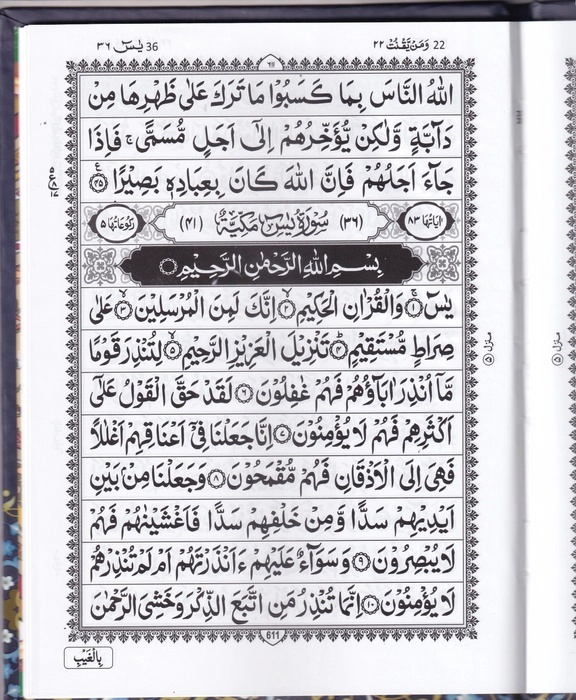 22 وَمَنْ يَّقْنُتْ ٢٢
36 يٰسٓ ٣٦
اللّٰهُ النَّاسَ بِمَا كَسَبُوْا مَا تَرَكَ عَلٰى ظَهْرِهَا مِنْ
دَآبَّةٍ وَّلٰكِنْ يُّؤَخِّرُهُمْ اِلٰٓى اَجَلٍ مُّسَمًّى ۚ فَاِذَا
جَآءَ اَجَلُهُمْ فَاِنَّ اللّٰهَ كَانَ بِعِبَادِهٖ بَصِيْرًا ﴿۴۵﴾
اٰيَاتُهَا ٨٣
(٣٦) سُوْرَةُ يٰسٓ مَكِّيَّةٌ (٤١)
رُكُوْعَاتُهَا ٥
بِسْمِ اللّٰهِ الرَّحْمٰنِ الرَّحِيْمِ
يٰسٓ ﴿۱﴾ وَالْقُرْاٰنِ الْحَكِيْمِ ﴿۲﴾ اِنَّكَ لَمِنَ الْمُرْسَلِيْنَ ﴿۳﴾ عَلٰى
صِرَاطٍ مُّسْتَقِيْمٍ ﴿۴﴾ تَنْزِيْلَ الْعَزِيْزِ الرَّحِيْمِ ﴿۵﴾ لِتُنْذِرَ قَوْمًا
مَّآ اُنْذِرَ اٰبَآؤُهُمْ فَهُمْ غٰفِلُوْنَ ﴿۶﴾ لَقَدْ حَقَّ الْقَوْلُ عَلٰٓى
اَكْثَرِهِمْ فَهُمْ لَا يُؤْمِنُوْنَ ﴿۷﴾ اِنَّا جَعَلْنَا فِيْٓ اَعْنَاقِهِمْ اَغْلٰلًا
فَهِيَ اِلَى الْاَذْقَانِ فَهُمْ مُّقْمَحُوْنَ ﴿۸﴾ وَجَعَلْنَا مِنْۢ بَيْنِ
اَيْدِيْهِمْ سَدًّا وَّمِنْ خَلْفِهِمْ سَدًّا فَاَغْشَيْنٰهُمْ فَهُمْ
لَا يُبْصِرُوْنَ ﴿۹﴾ وَسَوَآءٌ عَلَيْهِمْ ءَاَنْذَرْتَهُمْ اَمْ لَمْ تُنْذِرْهُمْ
لَا يُؤْمِنُوْنَ ﴿۱۰﴾ اِنَّمَا تُنْذِرُ مَنِ اتَّبَعَ الذِّكْرَ وَخَشِيَ الرَّحْمٰنَ
611
بِالْغَيْبِ
منزل ٥
منزل ٥